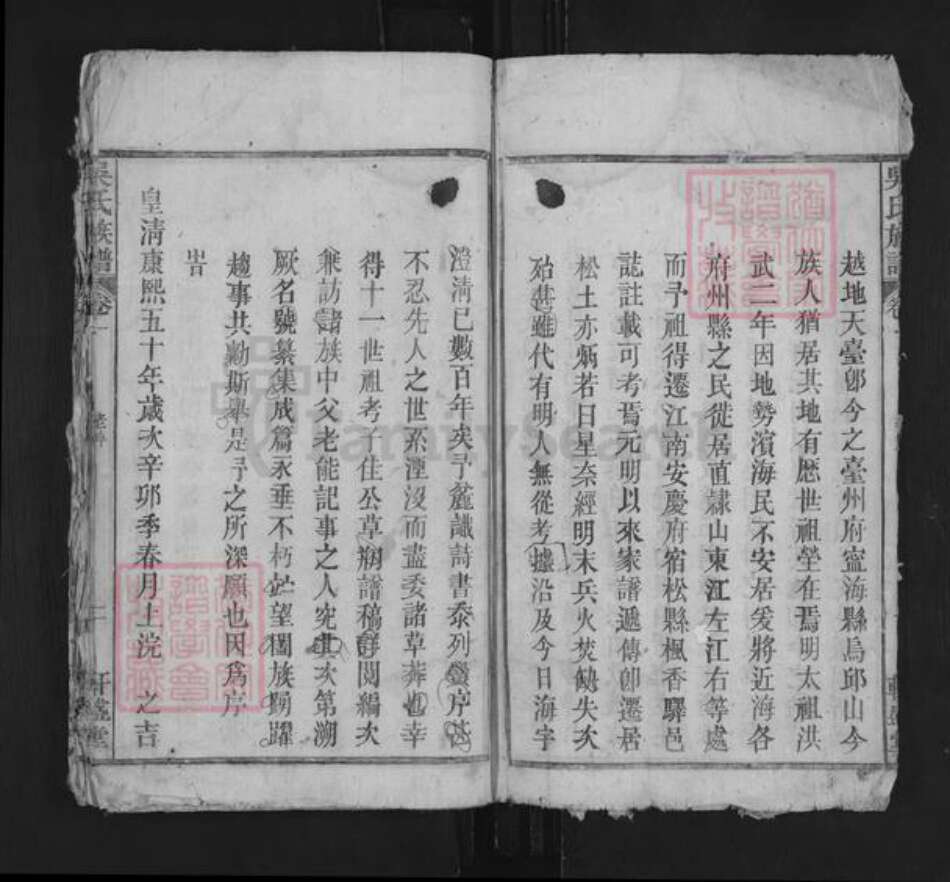 吳氏族譜 卷一
越地天臺郎今之臺州府寧海縣烏邱山今
族人猶居其地有歷世祖塋在焉明太祖洪
武二年因地勢濱海民不安居爰將近海各
府州縣之民徙居直隸山東江左江右等處
而予祖得遷江南安慶府宿松縣楓香驛邑
誌註載可考焉元明以來家譜遞傳卽遷居
松土亦炳若日星奈經明末兵火焚缺失次
殆甚雖代有明人無從考據沿及今日海宇
澄清已數百年矣予麓識詩書忝列黌序
不忍先人之世系湮沒而盡委諸草莽也幸
得十一世祖考子住公草剏譜稿詳閱編次
兼訪諸族中父老能記事之人究其次第溯
厥名號纂集成篇永垂不朽望闔族踴躍
趨事共勷斯舉是予之所深願也因爲序
旹
皇淸康熙五十年歲次辛卯季春月上浣 之吉
吳氏族譜 卷一 二 軒鑑堂
FamilySearch